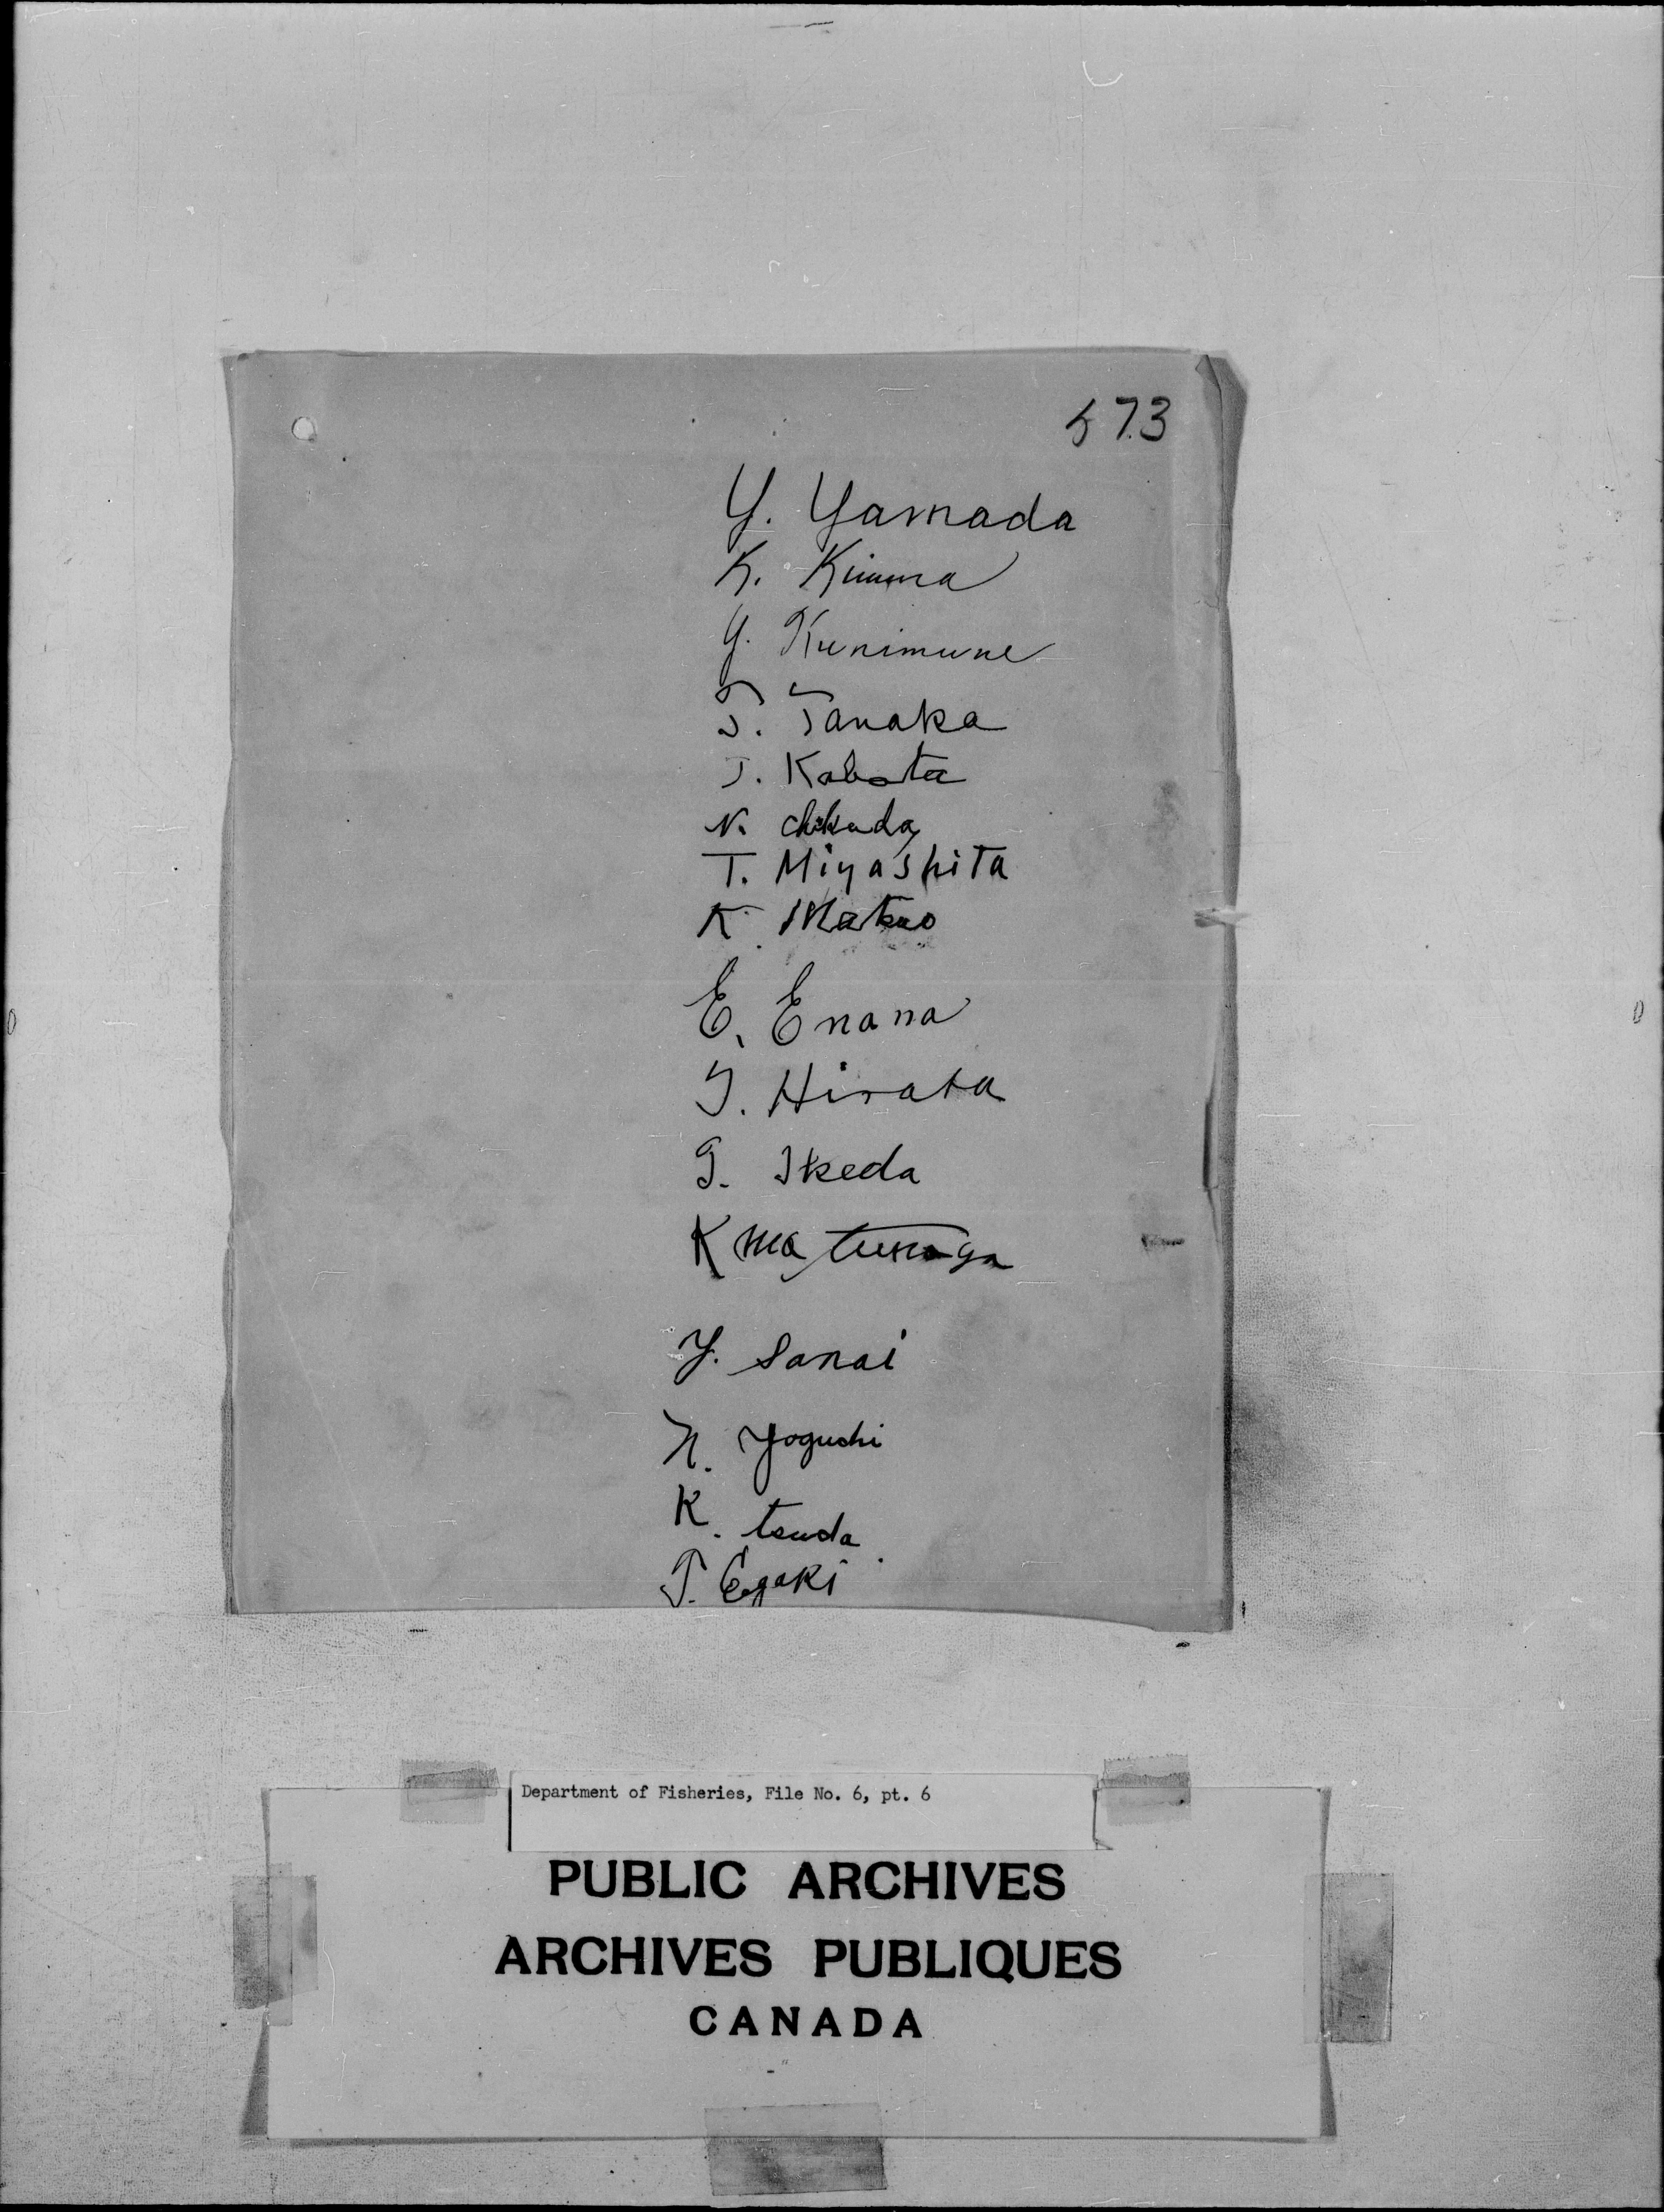 573
Y. Yamada
K. Kimura
Y. Kunimune
T. Tanaka
T. Kabota
N. Chikada
T. Miyashita
K. Matsuo
E. Enana
T. Hirata
G. Ikeda
K matunaga
Y. Sanai
N. Yoguchi
K. tsuda
T. Egaki
Department of Fisheries, File No. 6, pt. 6
PUBLIC ARCHIVES
ARCHIVES PUBLIQUES
CANADA